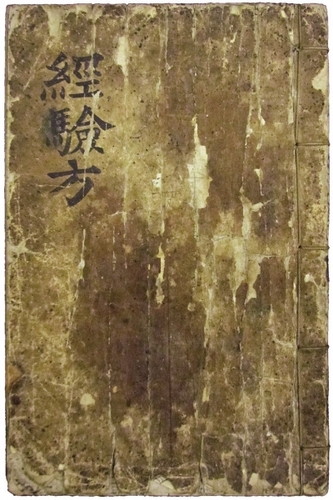 經驗方